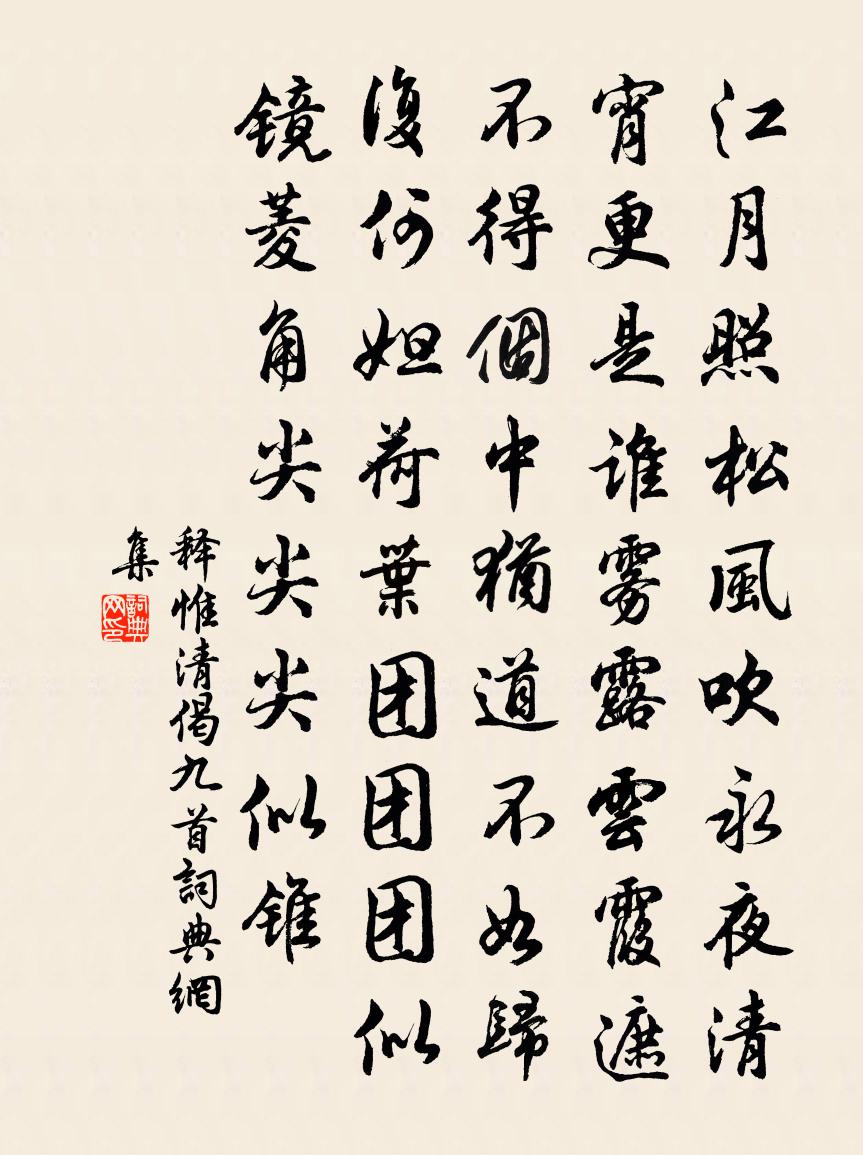 江月照松風吹永夜清
宵更是谁雾露雲霞遮
不得個中猶道不如歸
復何妲荷葉团团团似
镜菱角尖尖尖似锥
释惟清偈九首詞典網
集
詞典
网印